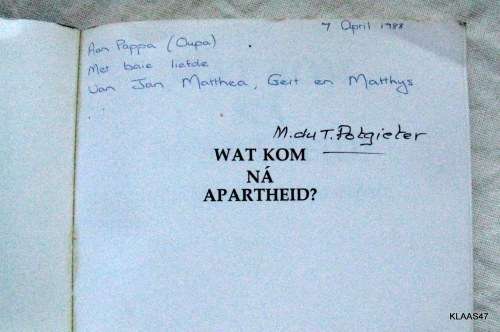 7 April 1988
Aan Pappa (Oupa)
Met baie liefde
van Jan, Matthea, Gert en Matthys
M. du T. Potgieter
WAT KOM
NÁ
APARTHEID?
KLAAS47